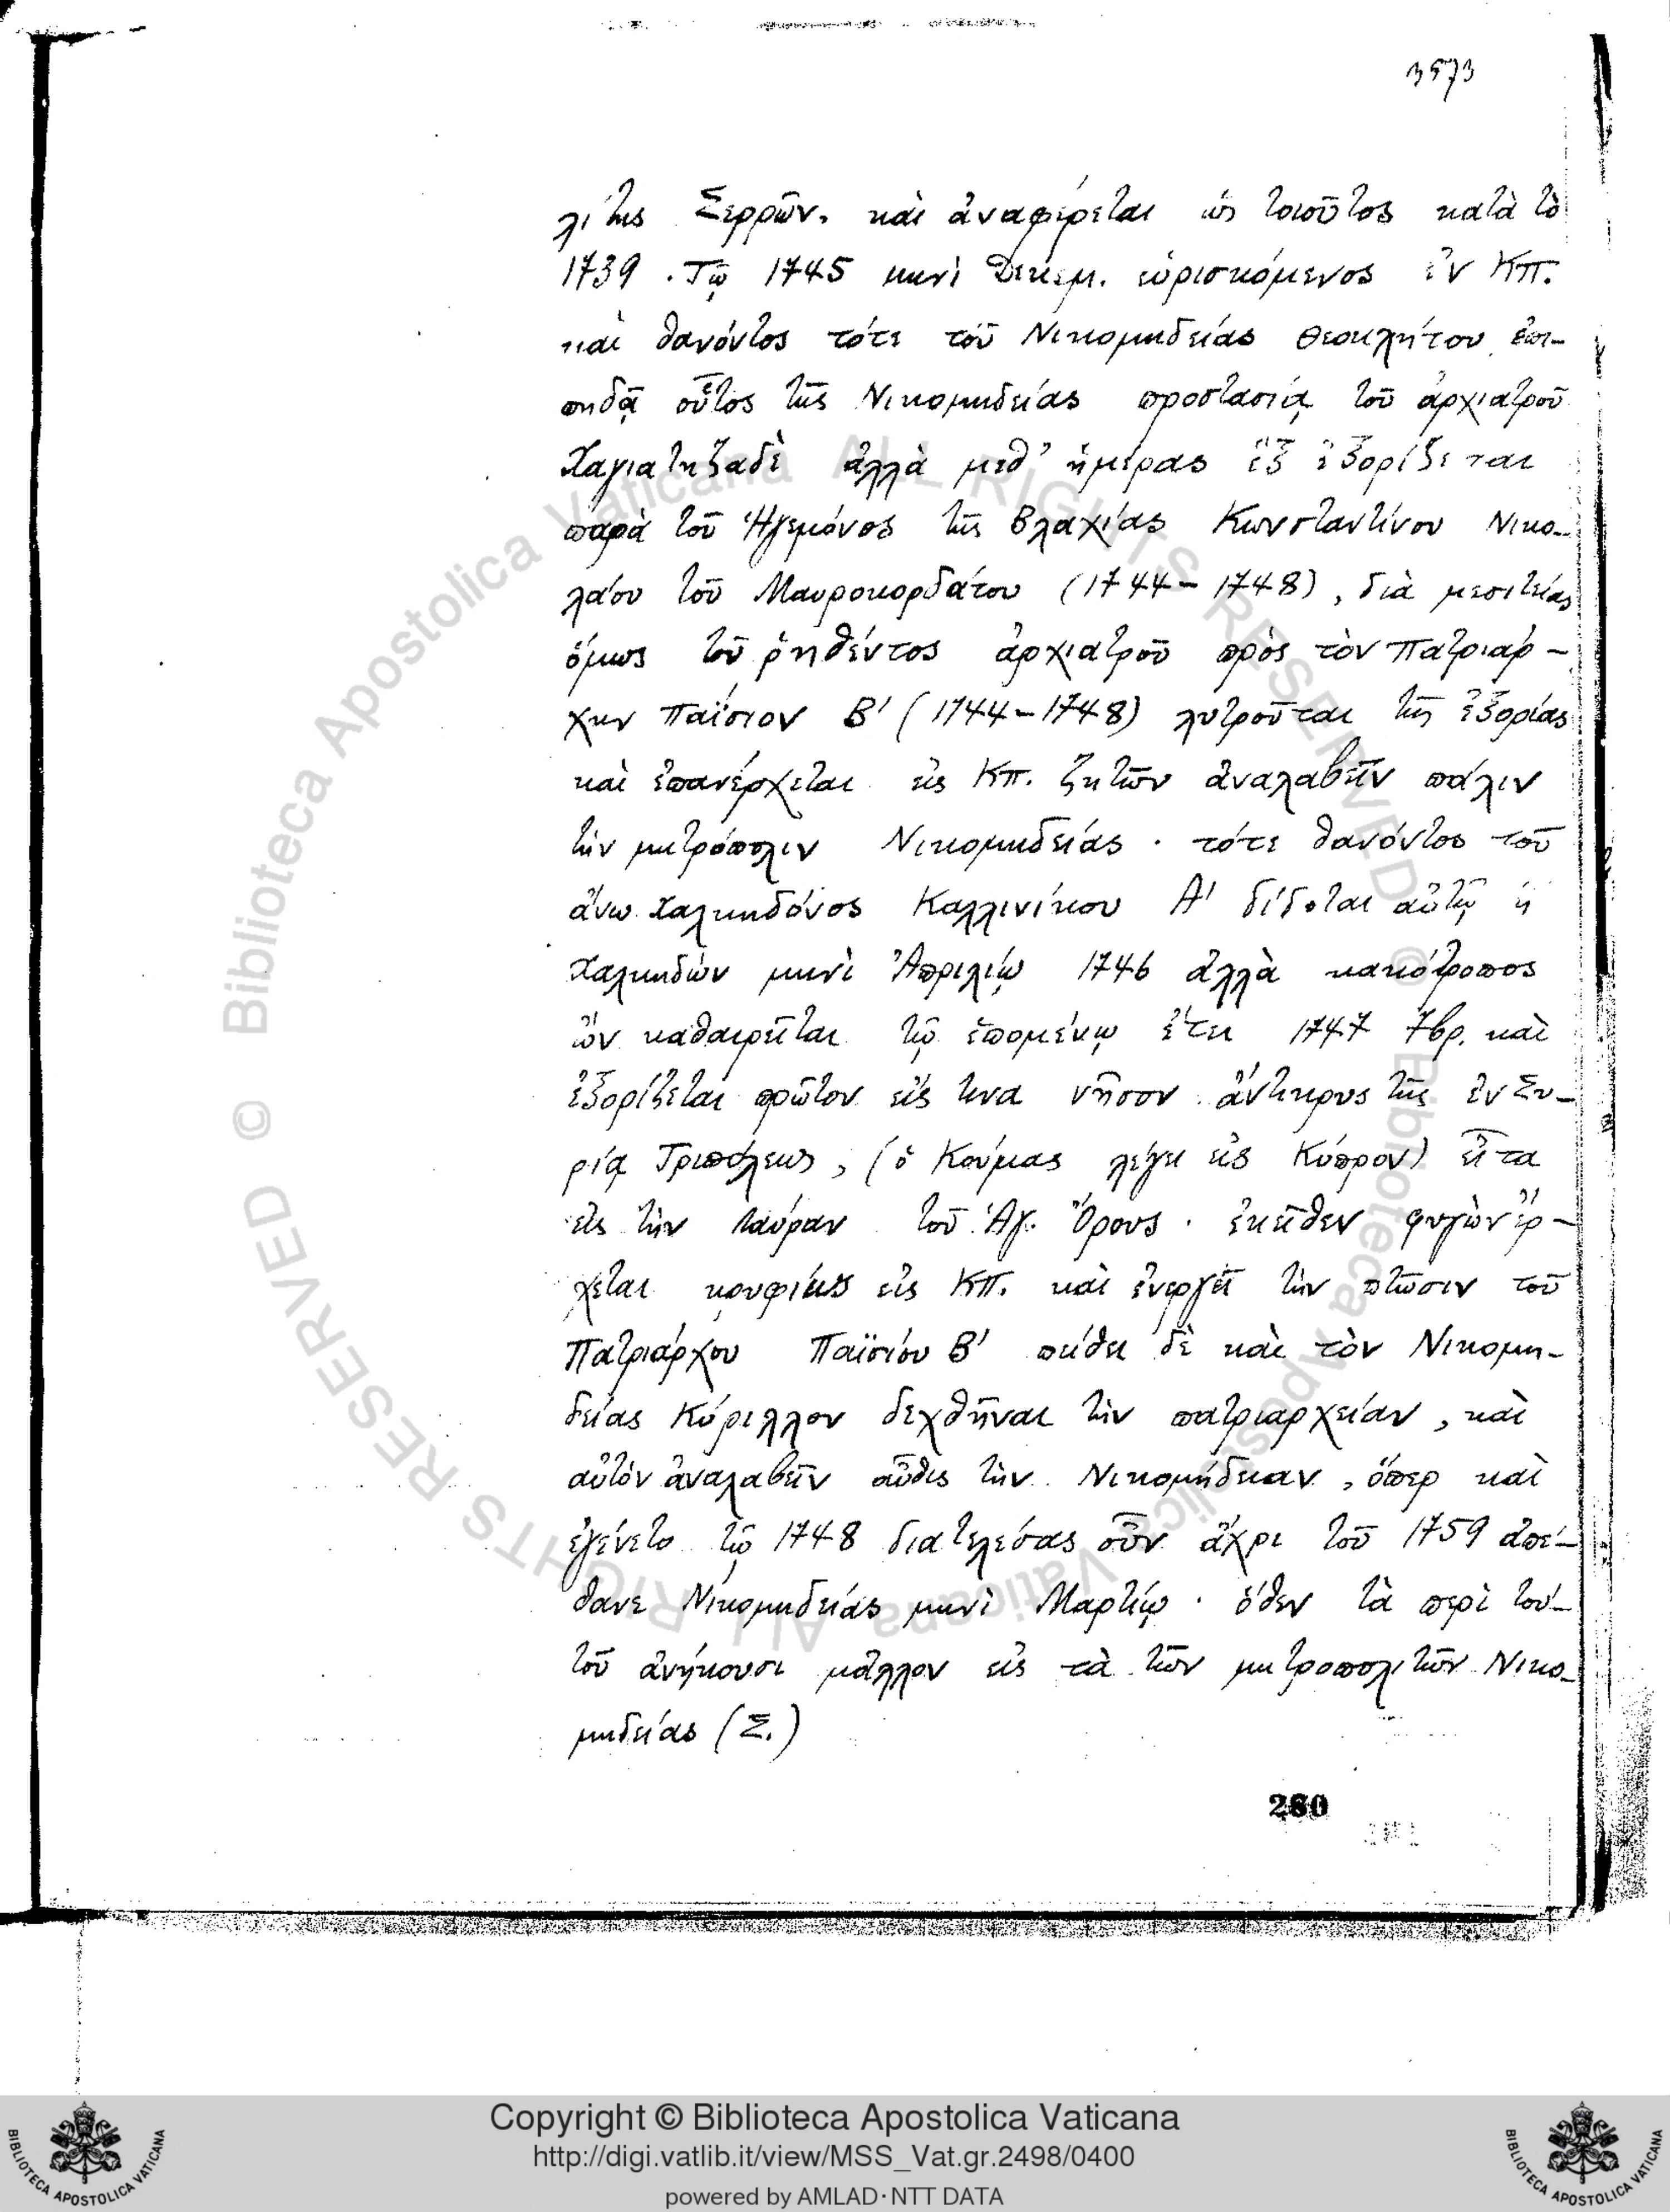 3573
λίτης Σερρῶν. καὶ ἀναφέρεται ὡς τοιοῦτος κατὰ τὸ
1739 . Τῷ 1745 μηνὶ Δεκεμ. εὑρισκόμενος ἐν Κπ.
καὶ θανόντος τότε τοῦ Νικομηδείας Θεοκλήτου ἐπι-
πηδᾷ οὗτος τῆς Νικομηδείας προστασίᾳ τοῦ ἀρχιατροῦ
Χαγιατηζαδὲ ἀλλὰ μεθ' ἡμέρας ἓξ ἐξορίζεται
παρὰ τοῦ Ἡγεμόνος τῆς Βλαχίας Κωνσταντίνου Νικο-
λάου τοῦ Μαυροκορδάτου (1744-1748), διὰ μεσιτείας
ὅμως τοῦ ῥηθέντος ἀρχιατροῦ πρὸς τὸν Πατριάρ-
χην Παΐσιον Β' (1744-1748) λυτροῦται τῆς ἐξορίας
καὶ ἐπανέρχεται εἰς Κπ. ζητῶν ἀναλαβεῖν πάλιν
τὴν μητρόπολιν Νικομηδείας · τότε θανόντος τοῦ
ἄνω Χαλκηδόνος Καλλινίκου Α' δίδοται αὐτῷ ἡ
Χαλκηδὼν μηνὶ Ἀπριλίῳ 1746 ἀλλὰ κακότροπος
ὢν καθαιρεῖται τῷ ἑπομένῳ ἔτει 1747 7βρ. καὶ
ἐξορίζεται πρῶτον εἰς τινα νῆσον ἄντικρυς τῆς ἐν Συ-
ρίᾳ Τριπόλεως, (ὁ Κούμας λέγει εἰς Κύπρον) εἶτα
εἰς τὴν Λαύραν τοῦ Ἁγ. Ὄρους · ἐκεῖθεν φυγὼν ἔρ-
χεται κρυφίως εἰς Κπ. καὶ ἐνεργεῖ τὴν πτῶσιν τοῦ
Πατριάρχου Παϊσίου Β' πείθει δὲ καὶ τὸν Νικομη-
δείας Κύριλλον δεχθῆναι τὴν πατριαρχείαν, καὶ
αὐτὸν ἀναλαβεῖν αὖθις τὴν Νικομήδειαν, ὅπερ καὶ
ἐγένετο τῷ 1748 διατελέσας οὖν ἄχρι τοῦ 1759 ἀπέ-
θανε Νικομηδείας μηνὶ Μαρτίῳ · ὅθεν τὰ περὶ τού-
του ἀνήκουσι μᾶλλον εἰς τὰ τῶν μητροπολιτῶν Νικο-
μηδείας (Σ.)
260
© Biblioteca Apostolica Vaticana ALL RIGHTS RESERVED
© Biblioteca Apostolica Vaticana ALL RIGHTS RESERVED
Copyright © Biblioteca Apostolica Vaticana
http://digi.vatlib.it/view/MSS_Vat.gr.2498/0400
powered by AMLAD·NTT DATA
BIBLIOTECA APOSTOLICA VATICANA
BIBLIOTECA APOSTOLICA VATICANA